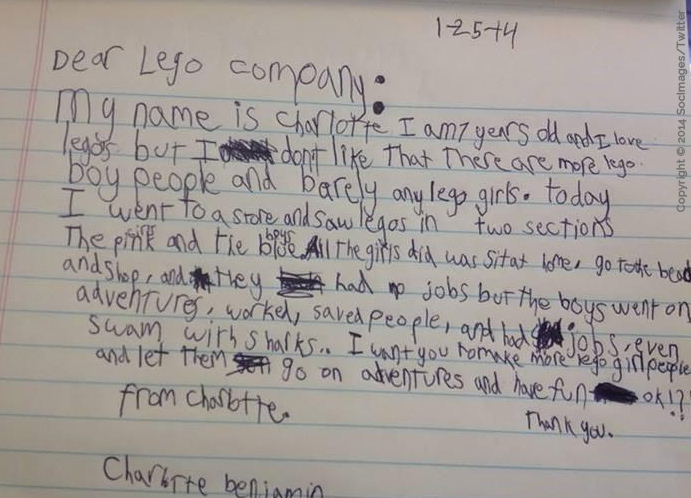 1-25-14
Dear Lego company:
My name is Charlotte I am 7 years old and I love
legos but I don't like that there are more lego
boy people and barely any lego girls. today
I went to a store and saw legos in two sections
The pink girls and the blue boys. All the girls did was sit at home, go to the beach
and shop, and they had no jobs but the boys went on
adventures, worked, saved people, and had jobs, even
swam with sharks.. I want you to make more lego girl people
and let them go on adventures and have fun ok!?!
from charlotte.
Thank you.
Charlotte benjamin
Copyright © 2014 SocImages/Twitter